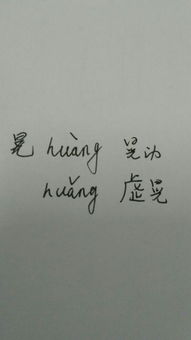 晃 huàng 晃动
huǎng 虚晃